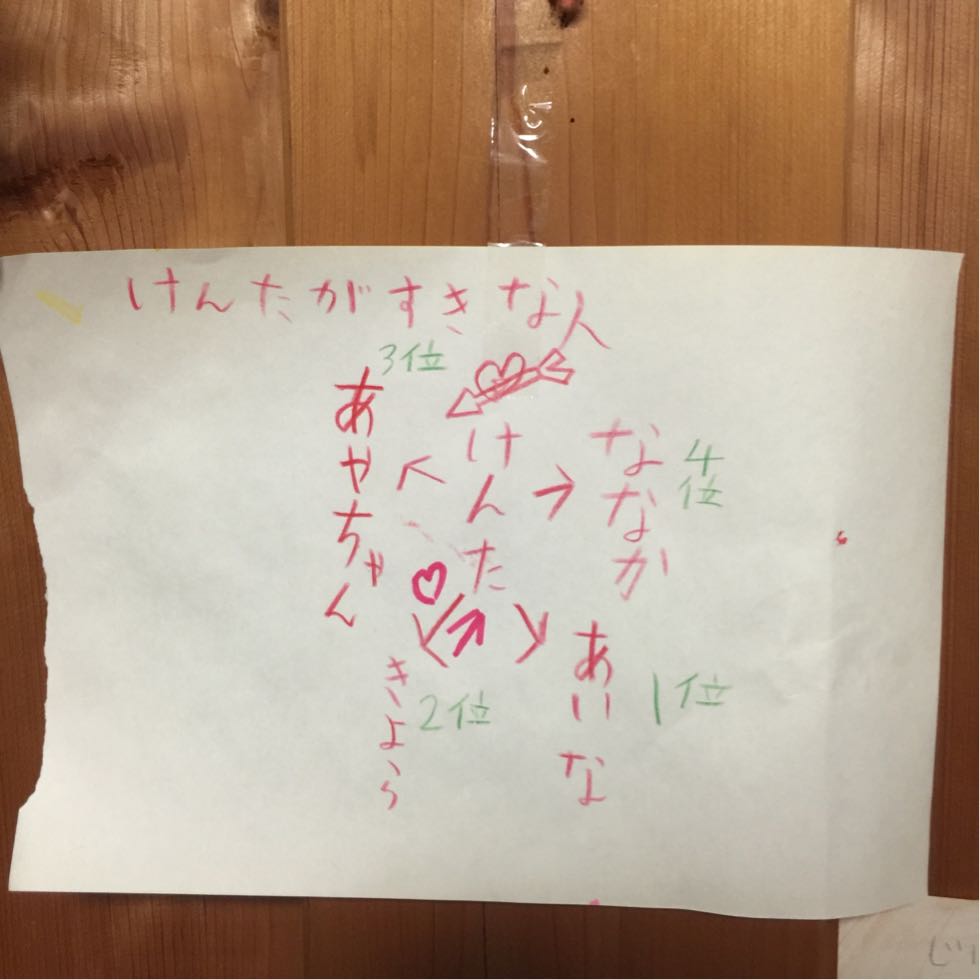 けんたがすきな人
3位
あやちゃん
けんた
ななか
4位
きよら
2位
あいな
1位